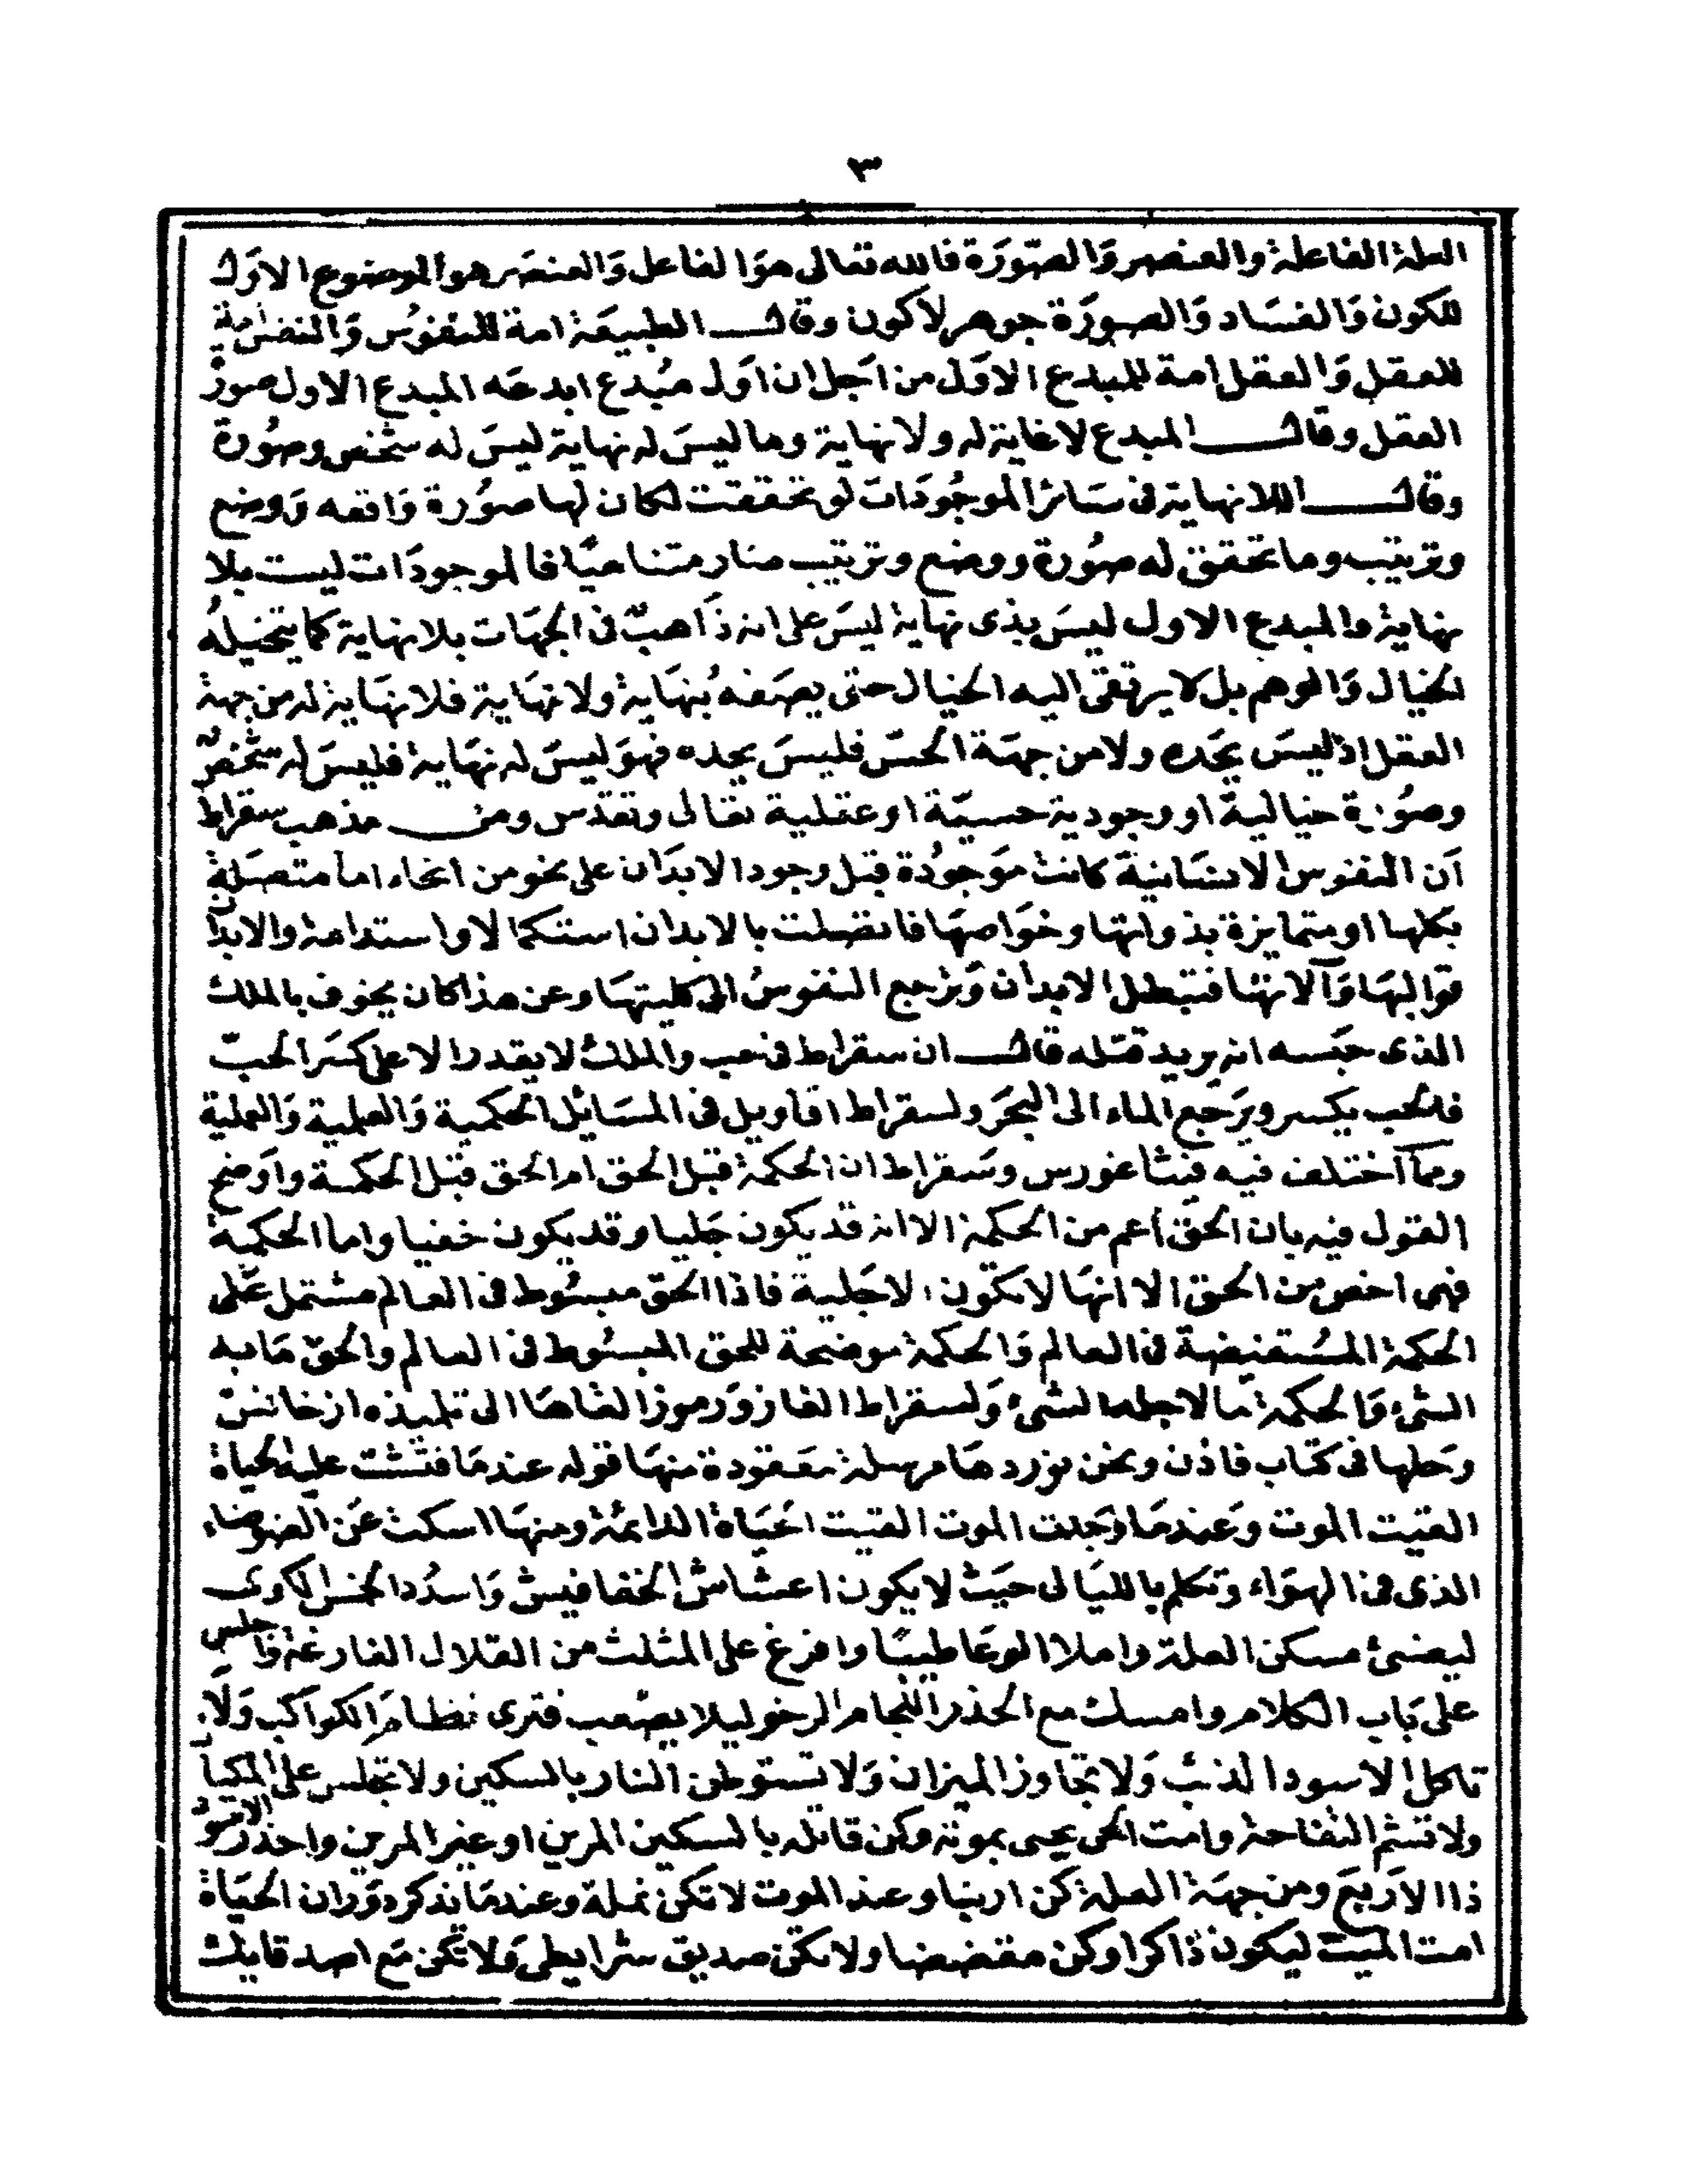 ٣
العلة الفاعلة والعنصر والصورة فالله تعالى هو الفاعل والعنصر هو الموضوع الاول
للكون والفساد والصورة جوهر لا كون وقال الطبيعة امة للنفوس والنفس امة
للعقل والعقل امة للمبدع الاول من اجل ان اول مبدع ابدعه المبدع الاول صورة
العقل وقال المبدع لا غاية له ولا نهاية وما ليس له نهاية ليس له شخص وصورة
وقال اللانهاية فى سائر الموجودات لو تحققت لكان لها صورة واقعه ووضع
وترتيب وما تحقق له صورة ووضع وترتيب صار متناهيا فالموجودات ليست بلا
نهاية والمبدع الاول ليس بذى نهاية ليس على انه ذاهب فى الجهات بلا نهاية كما يتخيله
الخيال والوهم بل لا يرتقى اليه الخيال حتى يصفه بنهاية ولا نهاية فلا نهاية له من جهة
العقل اذ ليس يحده ولا من جهة الحس فليس يحده فهو ليس له نهاية فليس له شخص
وصورة خيالية او وجودية حسية او عقلية تعالى وتقدس ومن مذهب سقراط
ان النفوس الانسانية كانت موجودة قبل وجود الابدان على نحو من انحاء اما متصلة
بكلها او متمايزة بذواتها وخواصها فاتصلت بالابدان استكمالا واستدامة والابدان
قوالبها وآلاتها فتبطل الابدان وترجع النفوس الى كليتها وعن هذا كان يخوف بالملك
الذى حبسه انه يريد قتله قال ان سقراط فى حب والملك لا يقدر الا على كسر الحب
فالحب يكسر ويرجع الماء الى البحر ولسقراط اقاويل فى المسائل الحكمية والعلمية والعملية
ومما اختلف فيه فيثاغورس وسقراط ان الحكمة قبل الحق ام الحق قبل الحكمة واوضح
القول فيه بان الحق اعم من الحكمة الا انه قد يكون جليا وقد يكون خفيا واما الحكمية
فهى اخص من الحق الا انها لا تكون الا جلية فاذا الحق مبسوط فى العالم مشتمل على
الحكمة المستفيضة فى العالم والحكمة موضحة للحق المبسوط فى العالم والحق ما به
الشئ والحكمة ما لاجله الشئ ولسقراط الغاز ورموز القاها الى تلميذه ارخانس
وحلها فى كتاب فاذن ونحن نوردها مرسلة معقودة منها قوله عندما فتشت علية الحياة
القيت الموت وعندما وجدت الموت القيت الحياة الدائمة ومنها اسكت عن الضوضاء
الذى فى الهواء وتكلم بالليالى حيث لا يكون اعشاش الخفافيش واسدد الخمس الكوى
ليضئ مسكن العلة واملا الوعا طيبا وافرغ على المثلث من القلال الفارغة واجلس
على باب الكلام وامسك مع الحذر اللجام الرخو ليلا يصعب فترى نظام الكواكب ولا
تاكل الاسود الذنب ولا تجاوز الميزان ولا تستوطن النار بالسكين ولا تجلس على المكيال
ولا تشم التفاحة وامت الحى يحيى بموته وكن قاتله بالسكين المرين او غير المرين واحذر الاسود
ذا الاربع ومن جهة العلة كن اربنا وعند الموت لا تكن نملة وعندما يذكر دوران الحياة
امت الميت ليكون ذاكرا وكن مقضضا ولا تكن صديق شرايطى ولا تكن مع اصدقايك